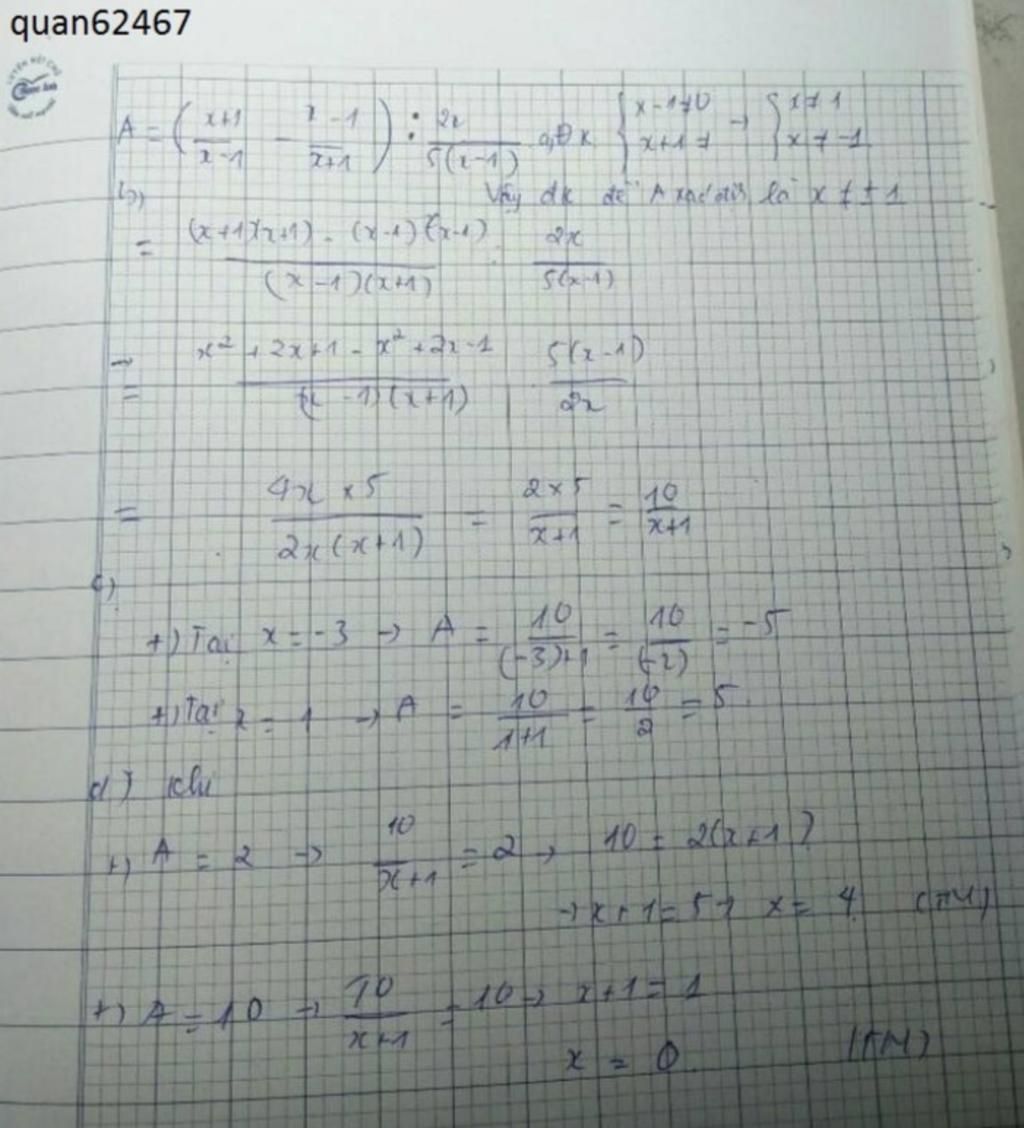 quan62467
A = (x+1/x-1 - x-1/x+1) : 2x/5(x-1) a, Đk {x-1≠0 x+1≠ → {x≠1 x≠-1
b) Vậy đk để A xác định là x≠±1
= (x+1)(x+1) - (x-1)(x-1)/(x-1)(x+1) : 2x/5(x-1)
= x²+2x+1-x²+2x-1/(x-1)(x+1) . 5(x-1)/2x
= 4x×5/2x(x+1) = 2×5/x+1 = 10/x+1
c)
+) Tại x = -3 → A = 10/(-3)+1 = 10/(-2) = -5
+) Tại x = 1 → A = 10/1+1 = 10/2 = 5
d) Khi
+) A = 2 → 10/x+1 = 2 → 10 = 2(x+1)
→ x+1 = 5 → x = 4 (TM)
+) A = 10 → 10/x+1 = 10 → x+1 = 1
x = 0 (TM)